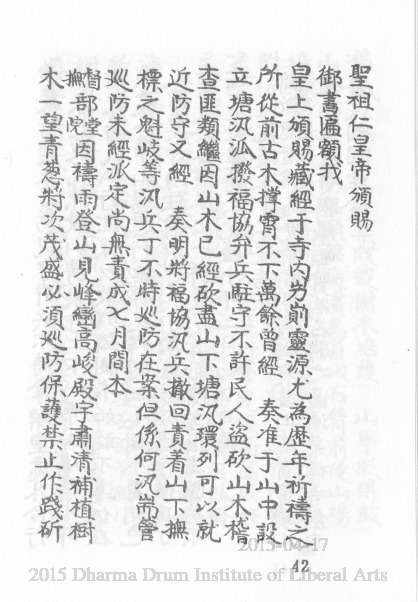 聖祖仁皇帝頒賜
御書匾額我
皇上頒賜藏經于寺内岃崱靈源尤為歷年祈禱之
所從前古木撑霄不下萬餘曾經　奏准于山中設
立塘汛泒撥福協弁兵駐守不許民人盜砍山木稽
查匪類繼因山木已經砍盡山下塘汛環列可以就
近防守又經　奏明將福協汛兵撤回責着山下撫
標之魁岐等汛兵丁不時巡防在案但係何汛耑管
巡防未經派定尚無責成七月間本
督撫部院堂因禱雨登山見峰巒高峻殿宇肅清補植樹
木一望青葱將次茂盛必須巡防保護禁止作踐斫
2015-04-17
42
2015 Dharma Drum Institute of Liberal Arts